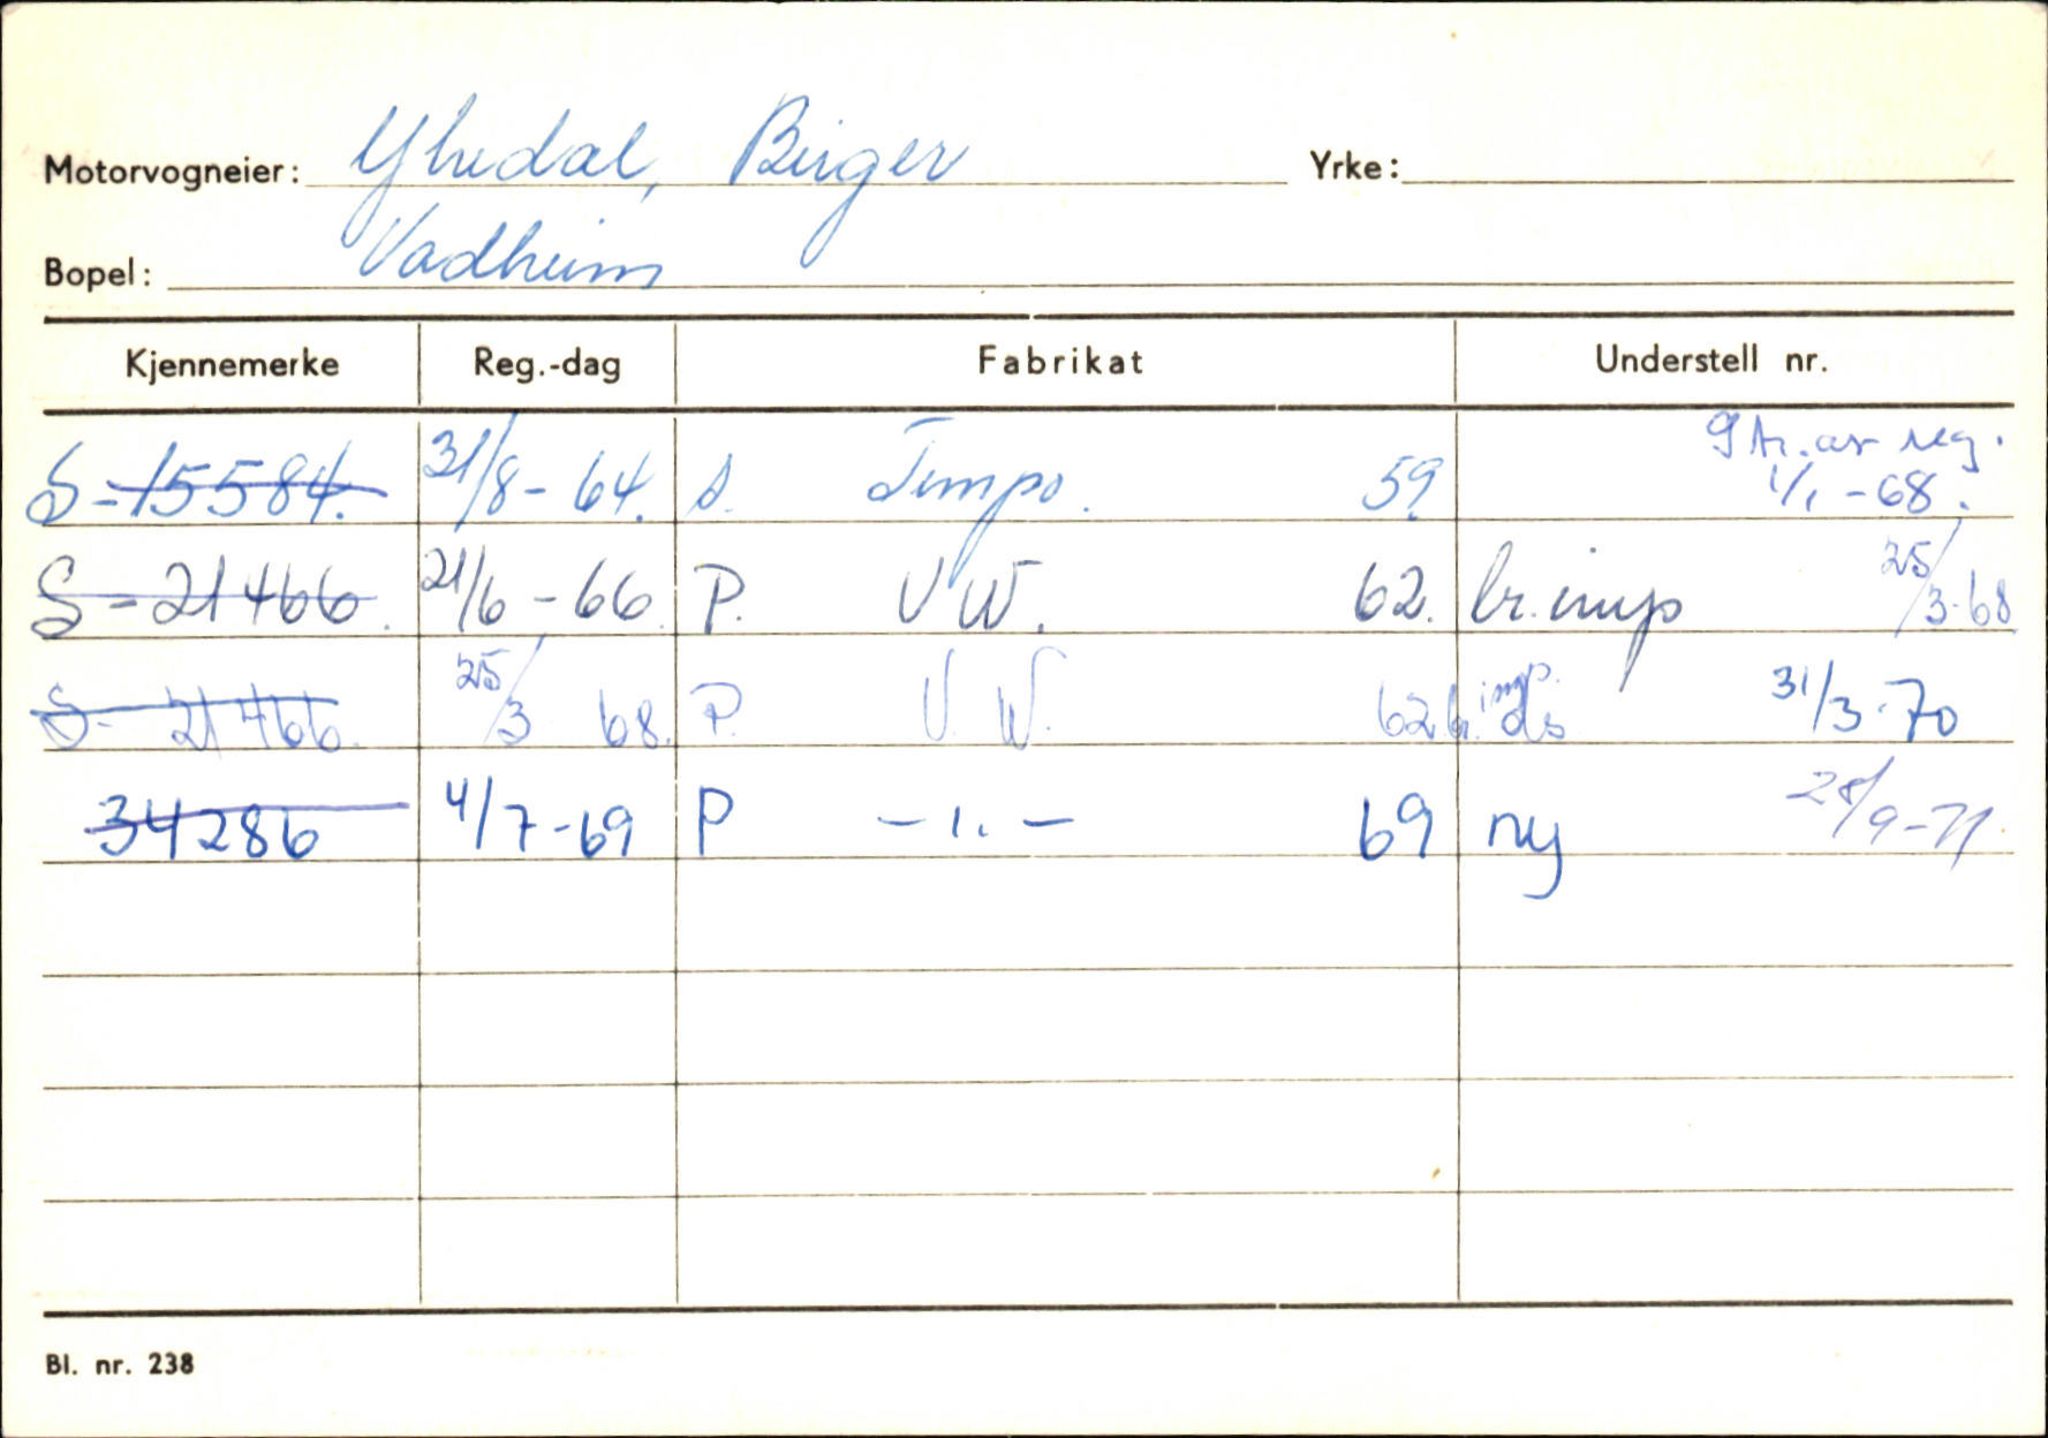 Motorvogneier: Ytredal, Birger Yrke:
Bopel: Vadheim
Kjennemerke Reg.-dag Fabrikat Understell nr.
S-15584. 31/8-64. s. Tempo. 59. av reg. 1/1-68.
S-21466. 21/6-66. P. VW. 62. br.imp 25/3-68
S-21466. 25/3 68. P. V.W. 62 imp. 31/3-70
34286 4/7-69 P -"- 69 ny 28/9-71
Bl. nr. 238